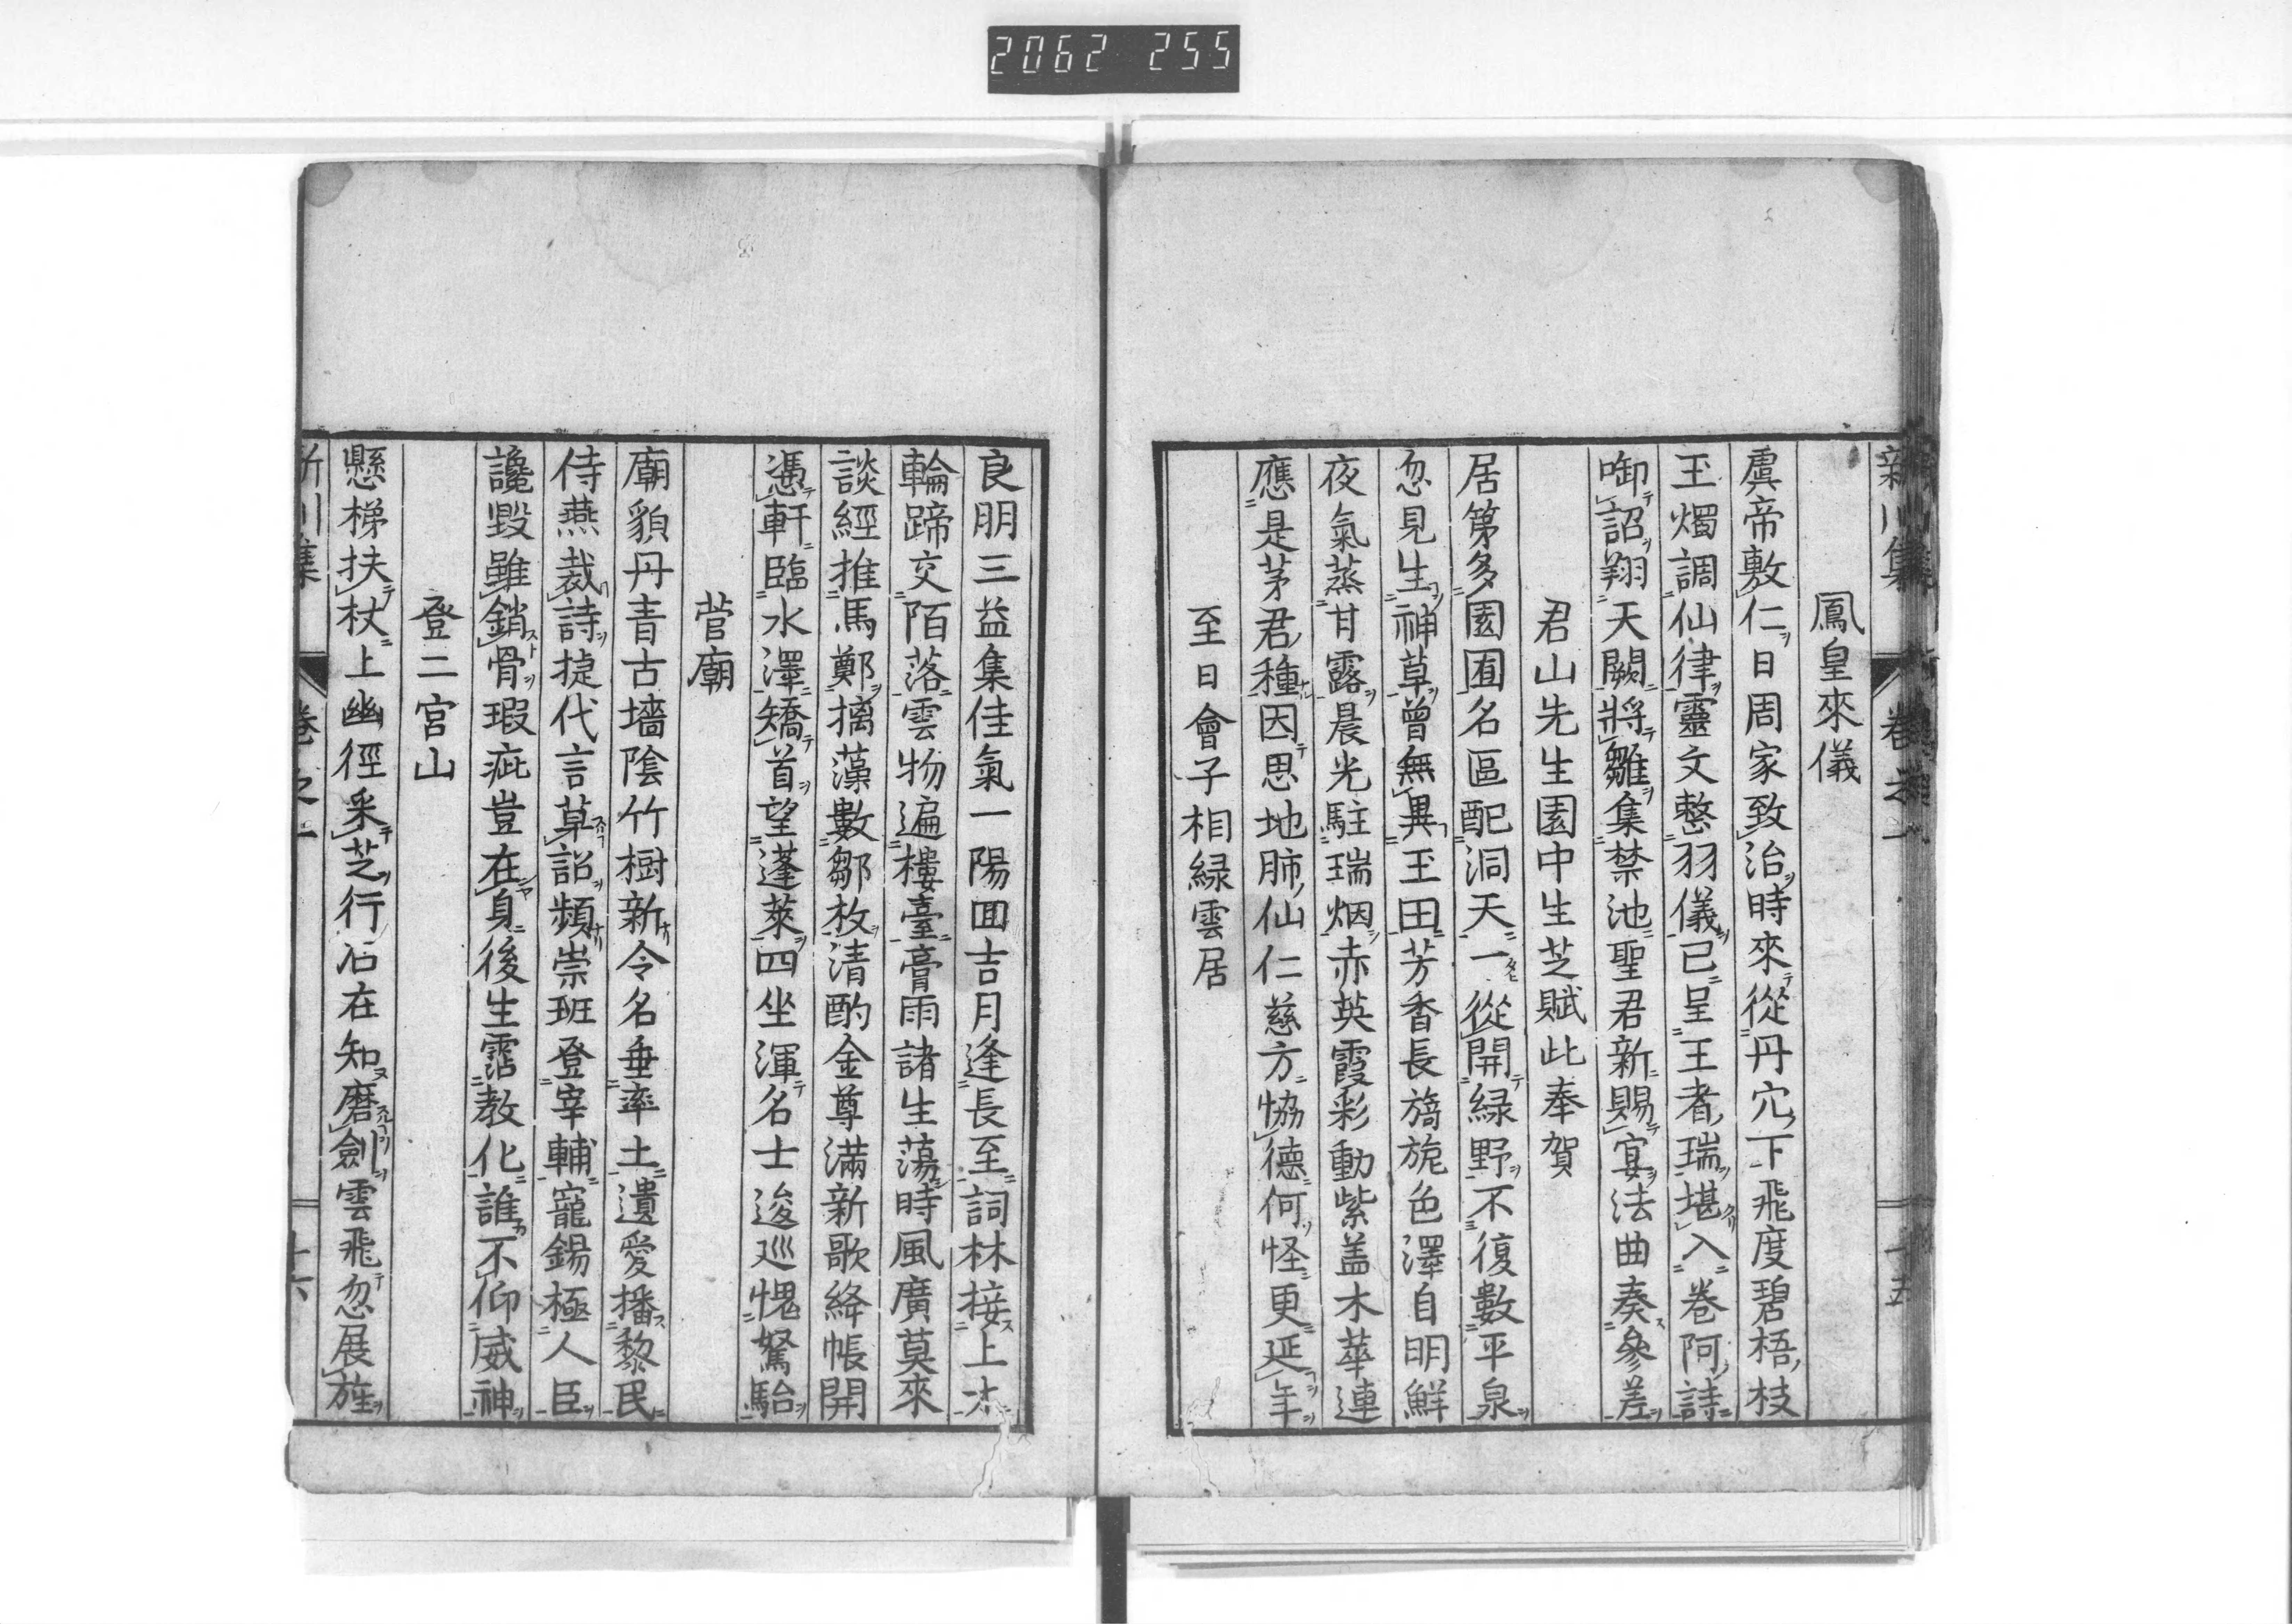 2062 255
新川集 卷之一 十五
鳳皇來儀
虞帝敷仁日周家致治時來從丹穴下飛度碧梧枝
玉燭調仙律靈文整羽儀已呈王者瑞堪入卷阿詩
啣詔翔天闕將雛集禁池聖君新賜宴法曲奏參差
君山先生園中生芝賦此奉賀
居第多園囿名區配洞天一從開緑野不復數平泉
忽見生神草曾無異玉田芳香長旖旎色澤自明鮮
夜氣蒸甘露晨光駐瑞烟赤英霞彩動紫盖木華連
應是茅君種因思地肺仙仁慈方協德何怪更延年
至日會子相緑雲居
良朋三益集佳氣一陽囬吉月逢長至詞林接上才
輪蹄交陌落雲物遍樓臺膏雨諸生蕩時風廣莫來
談經推馬鄭摛藻數鄒枚清酌金尊滿新歌絳帳開
憑軒臨水澤矯首望蓬萊四坐渾名士逡巡愧駑駘
菅廟
廟貌丹青古墻陰竹樹新令名垂率土遺愛播黎民
侍燕裁詩捷代言草詔頻崇班登宰輔寵錫極人臣
讒毀雖銷骨瑕疵豈在身後生霑教化誰不仰威神
登二宮山
懸梯扶杖上幽徑采芝行石在知磨劍雲飛忽展旌
新川集 卷之一 十六